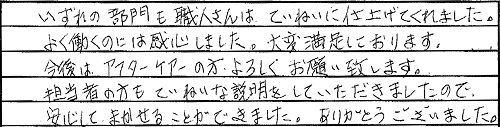 いずれの部門も職人さんは、ていねいに仕上げてくれました。
よく働くのには感心しました。大変満足しております。
今後は アフターケアーの方 よろしく お願い致します。
担当者の方も ていねいな説明をしていただきましたので、
安心して まかせることができました。ありがとうございました。